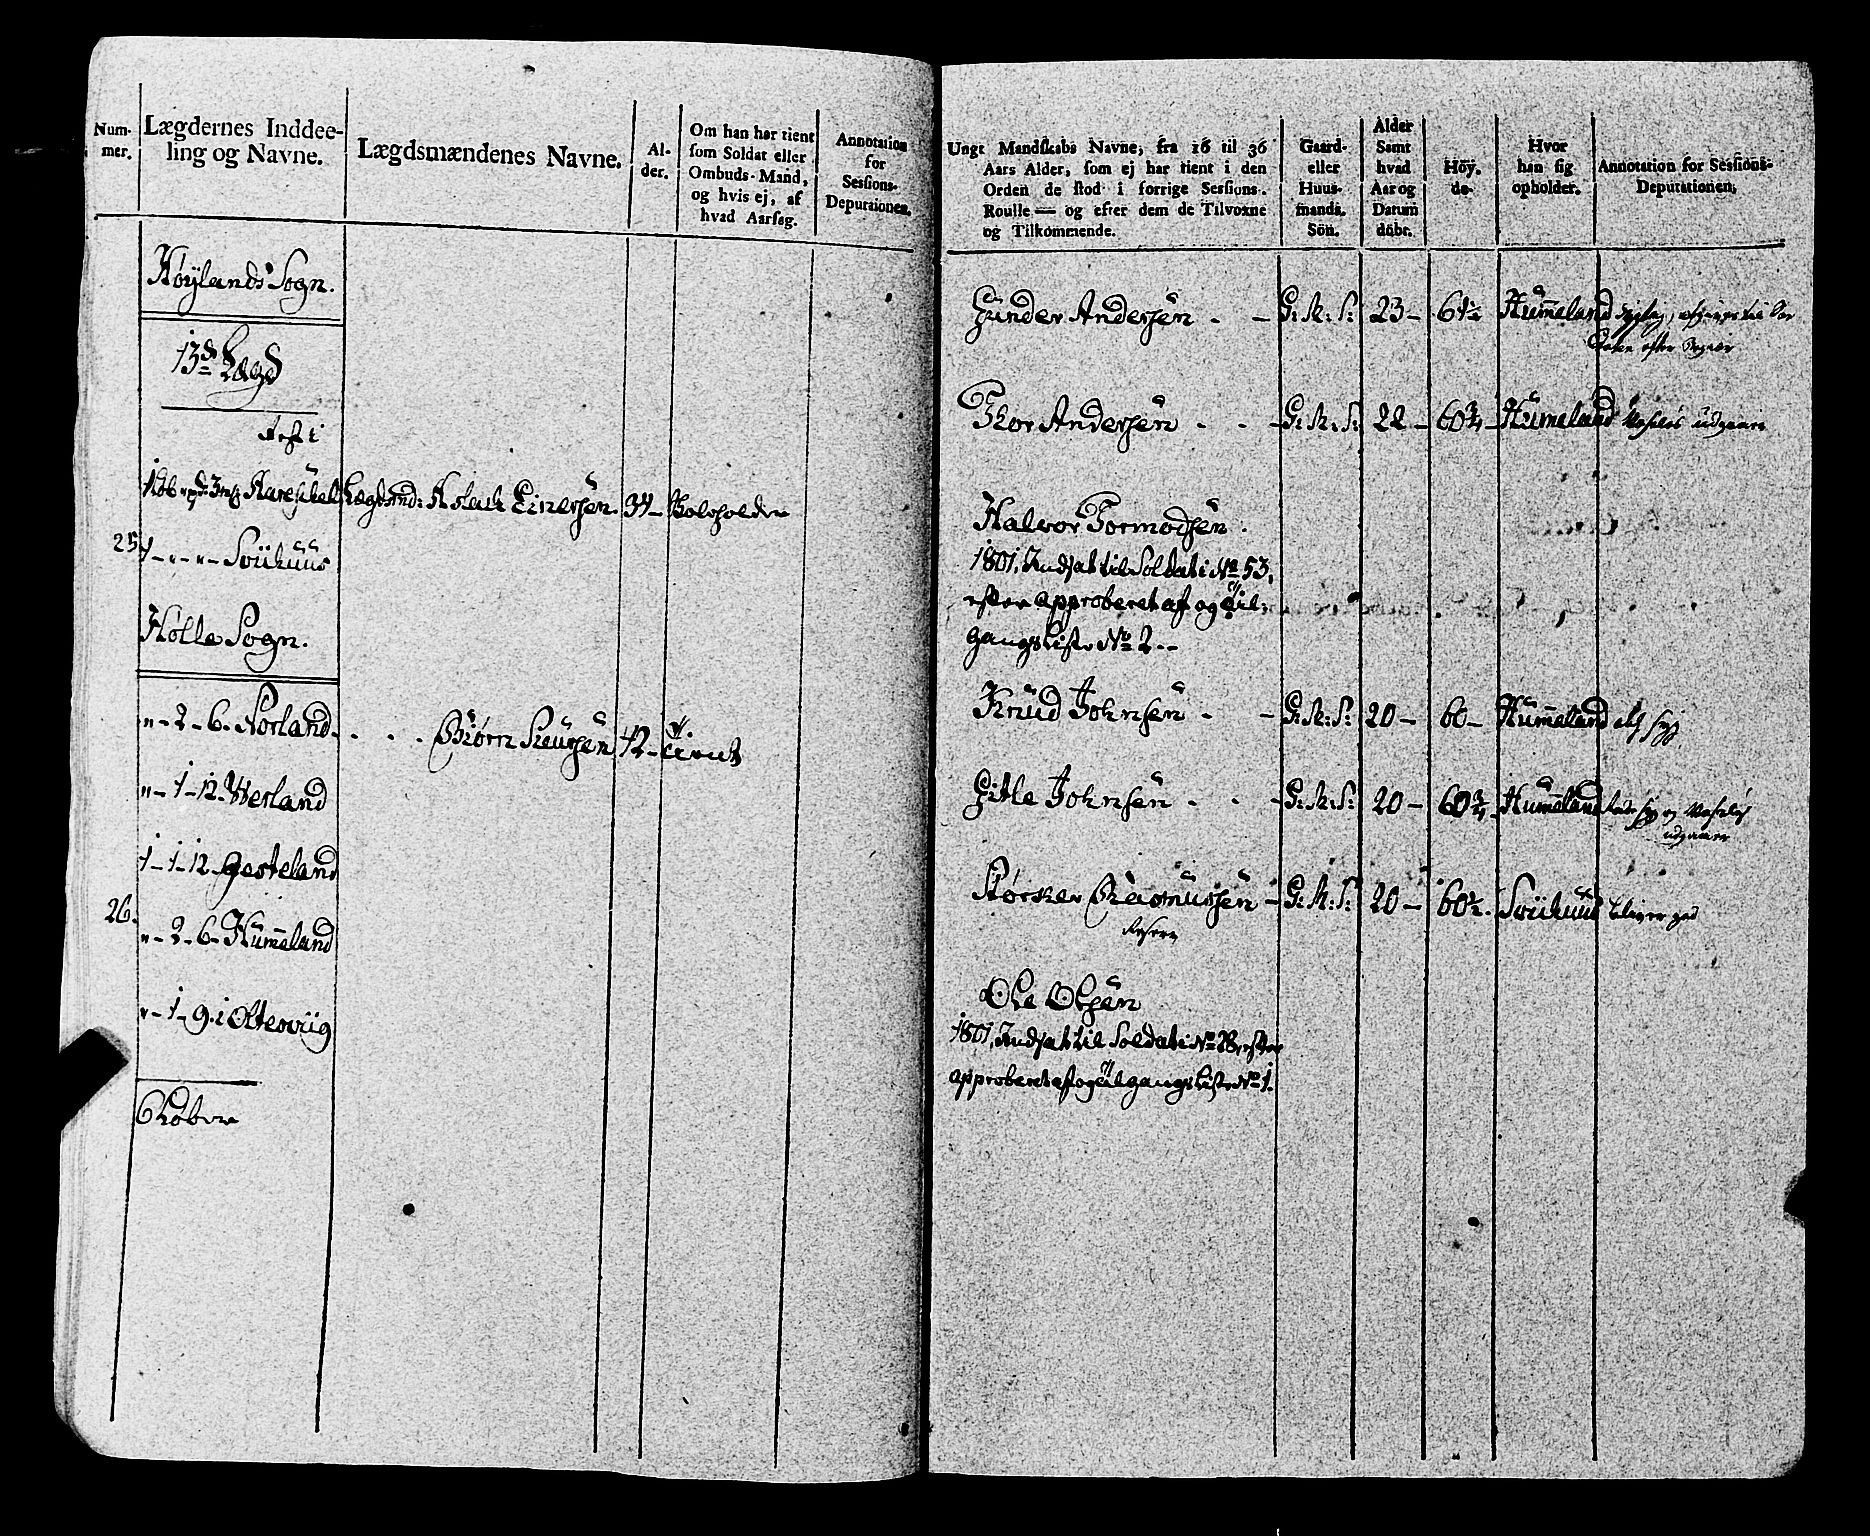 Num-
mer.
Lægdernes Inddee-
ling og Navne.
Lægdsmændenes Navne.
Al-
der.
Om han har tient
som Soldat eller
Ombuds-Mand,
og hvis ej, af
hvad Aarsag.
Annotation
for
Sessions-
Deputationen.
Høylands Sogn.
13de Lægd
Rest i
1 Løb Aareskel Lægdsmd: Aslach Einersen. 34-
25 1 - " - " - Sviihuus
Holle Sogn.
" - 2 - 6 - Norland . . . Biørn Siursen 42 -
" - 1 - 12 - Werland
1 - 1 - 12 - Gesteland
26. " - 2 - 6 - Hummeland
" - 1 - 9 - i Oltesviig
6 Løber
Ungt Mandskabs Navne, fra 16 til 36
Aars Alder, som ej har tient i den
Orden de stod i forrige Sessions-
Roulle — og efter dem de Tilvoxne
og Tilkommende.
Gaard-
eller
Huus-
mands.
Søn.
Alder
Samt
hvad
Aar og
Datum
døbt.
Høy-
de.
Hvor
han sig
opholder.
Annotation for Sessions-
Deputationen.
Gunder Andersen . - G: M: S: 23 - 61½ Hummeland
Thor Andersen . . - G: M: S: 22 - 60¾ - Humeland udgaar
Halvor Tormodsen .
1801, Indsat til Soldat i No 53,
efter approberet af og til:
gangs Liste No 2. -
Knud Johnsen . - G: M: S: 20 - 60 - Hummeland
Gitle Johnsen . . - G: M: S: 20 - 60¾ - Hummeland
udgaar
Størker Rasmussen - G: M: S: 20 - 60½. Sviihuus bliver ved
Reserve
Ole Olsen
1801, Indsat til Soldat i No 28, efter
approberet af og til gangs Liste No 1.